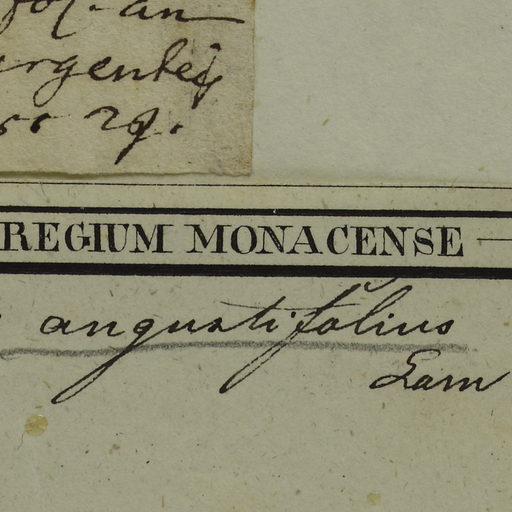 fol. an
argenteis
29.
REGIUM MONACENSE
angustifolius
Lam